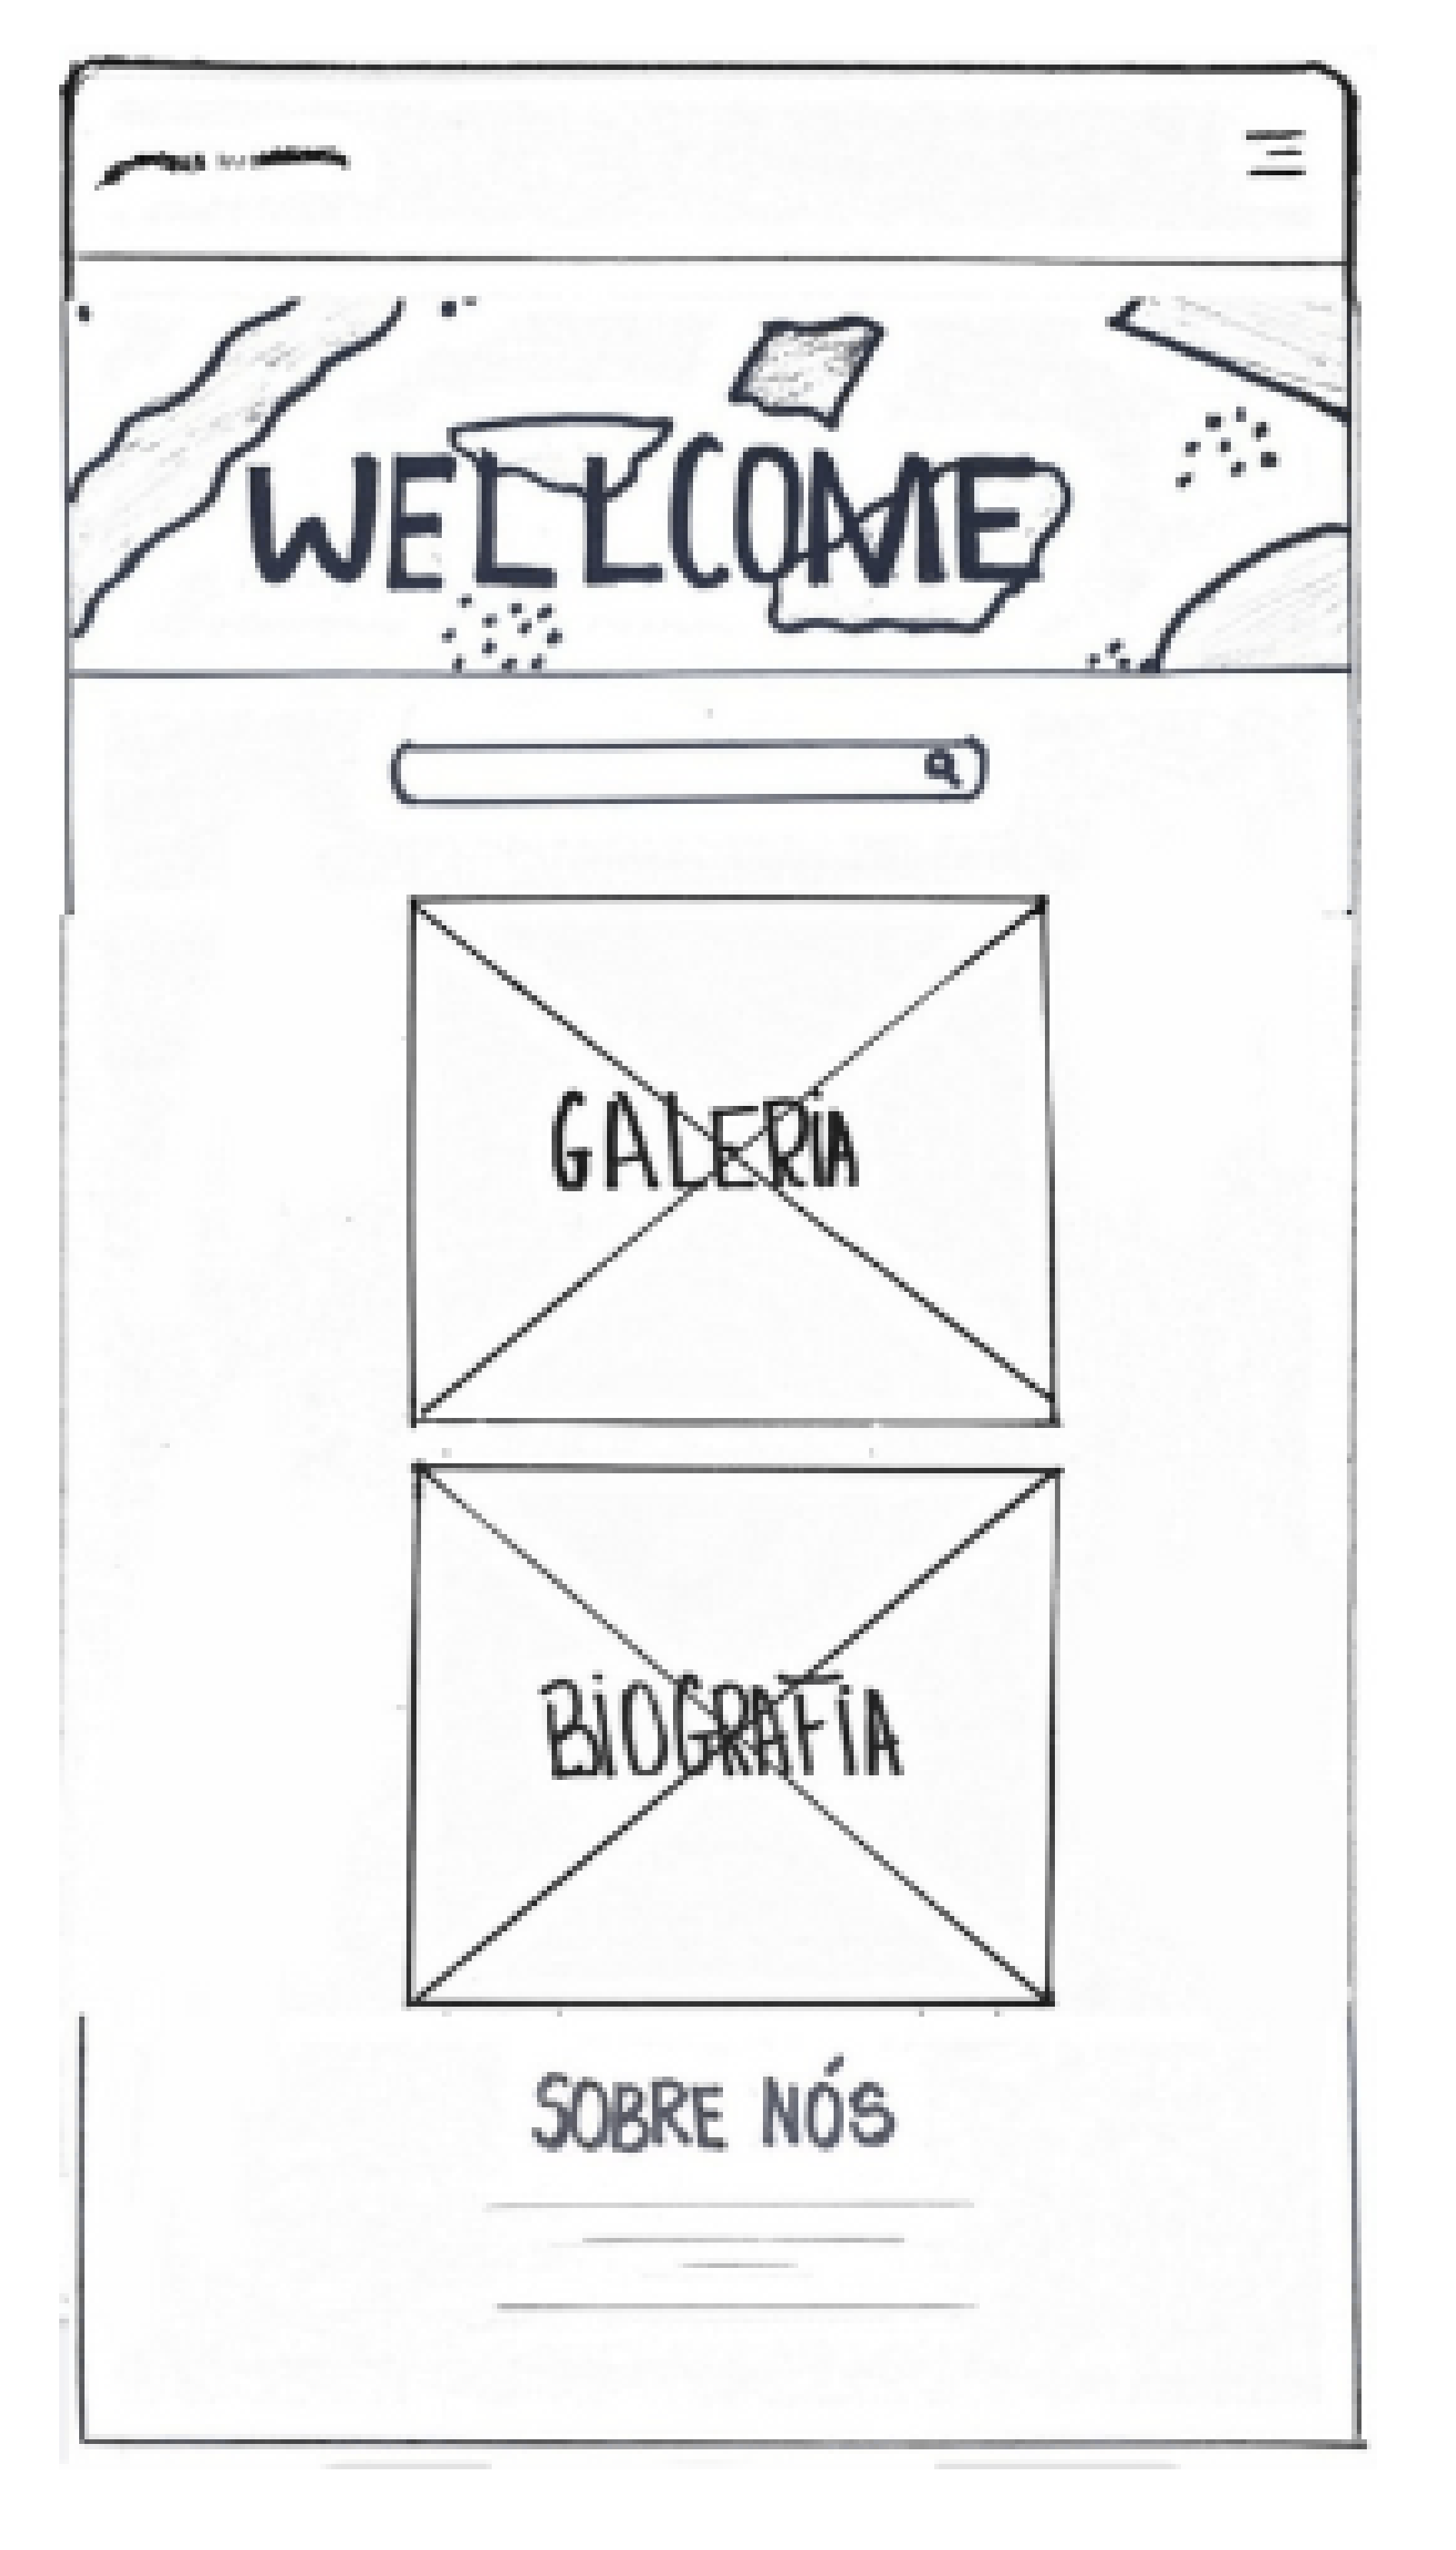 WELLCOME
GALERIA
BIOGRAFIA
SOBRE NÓS